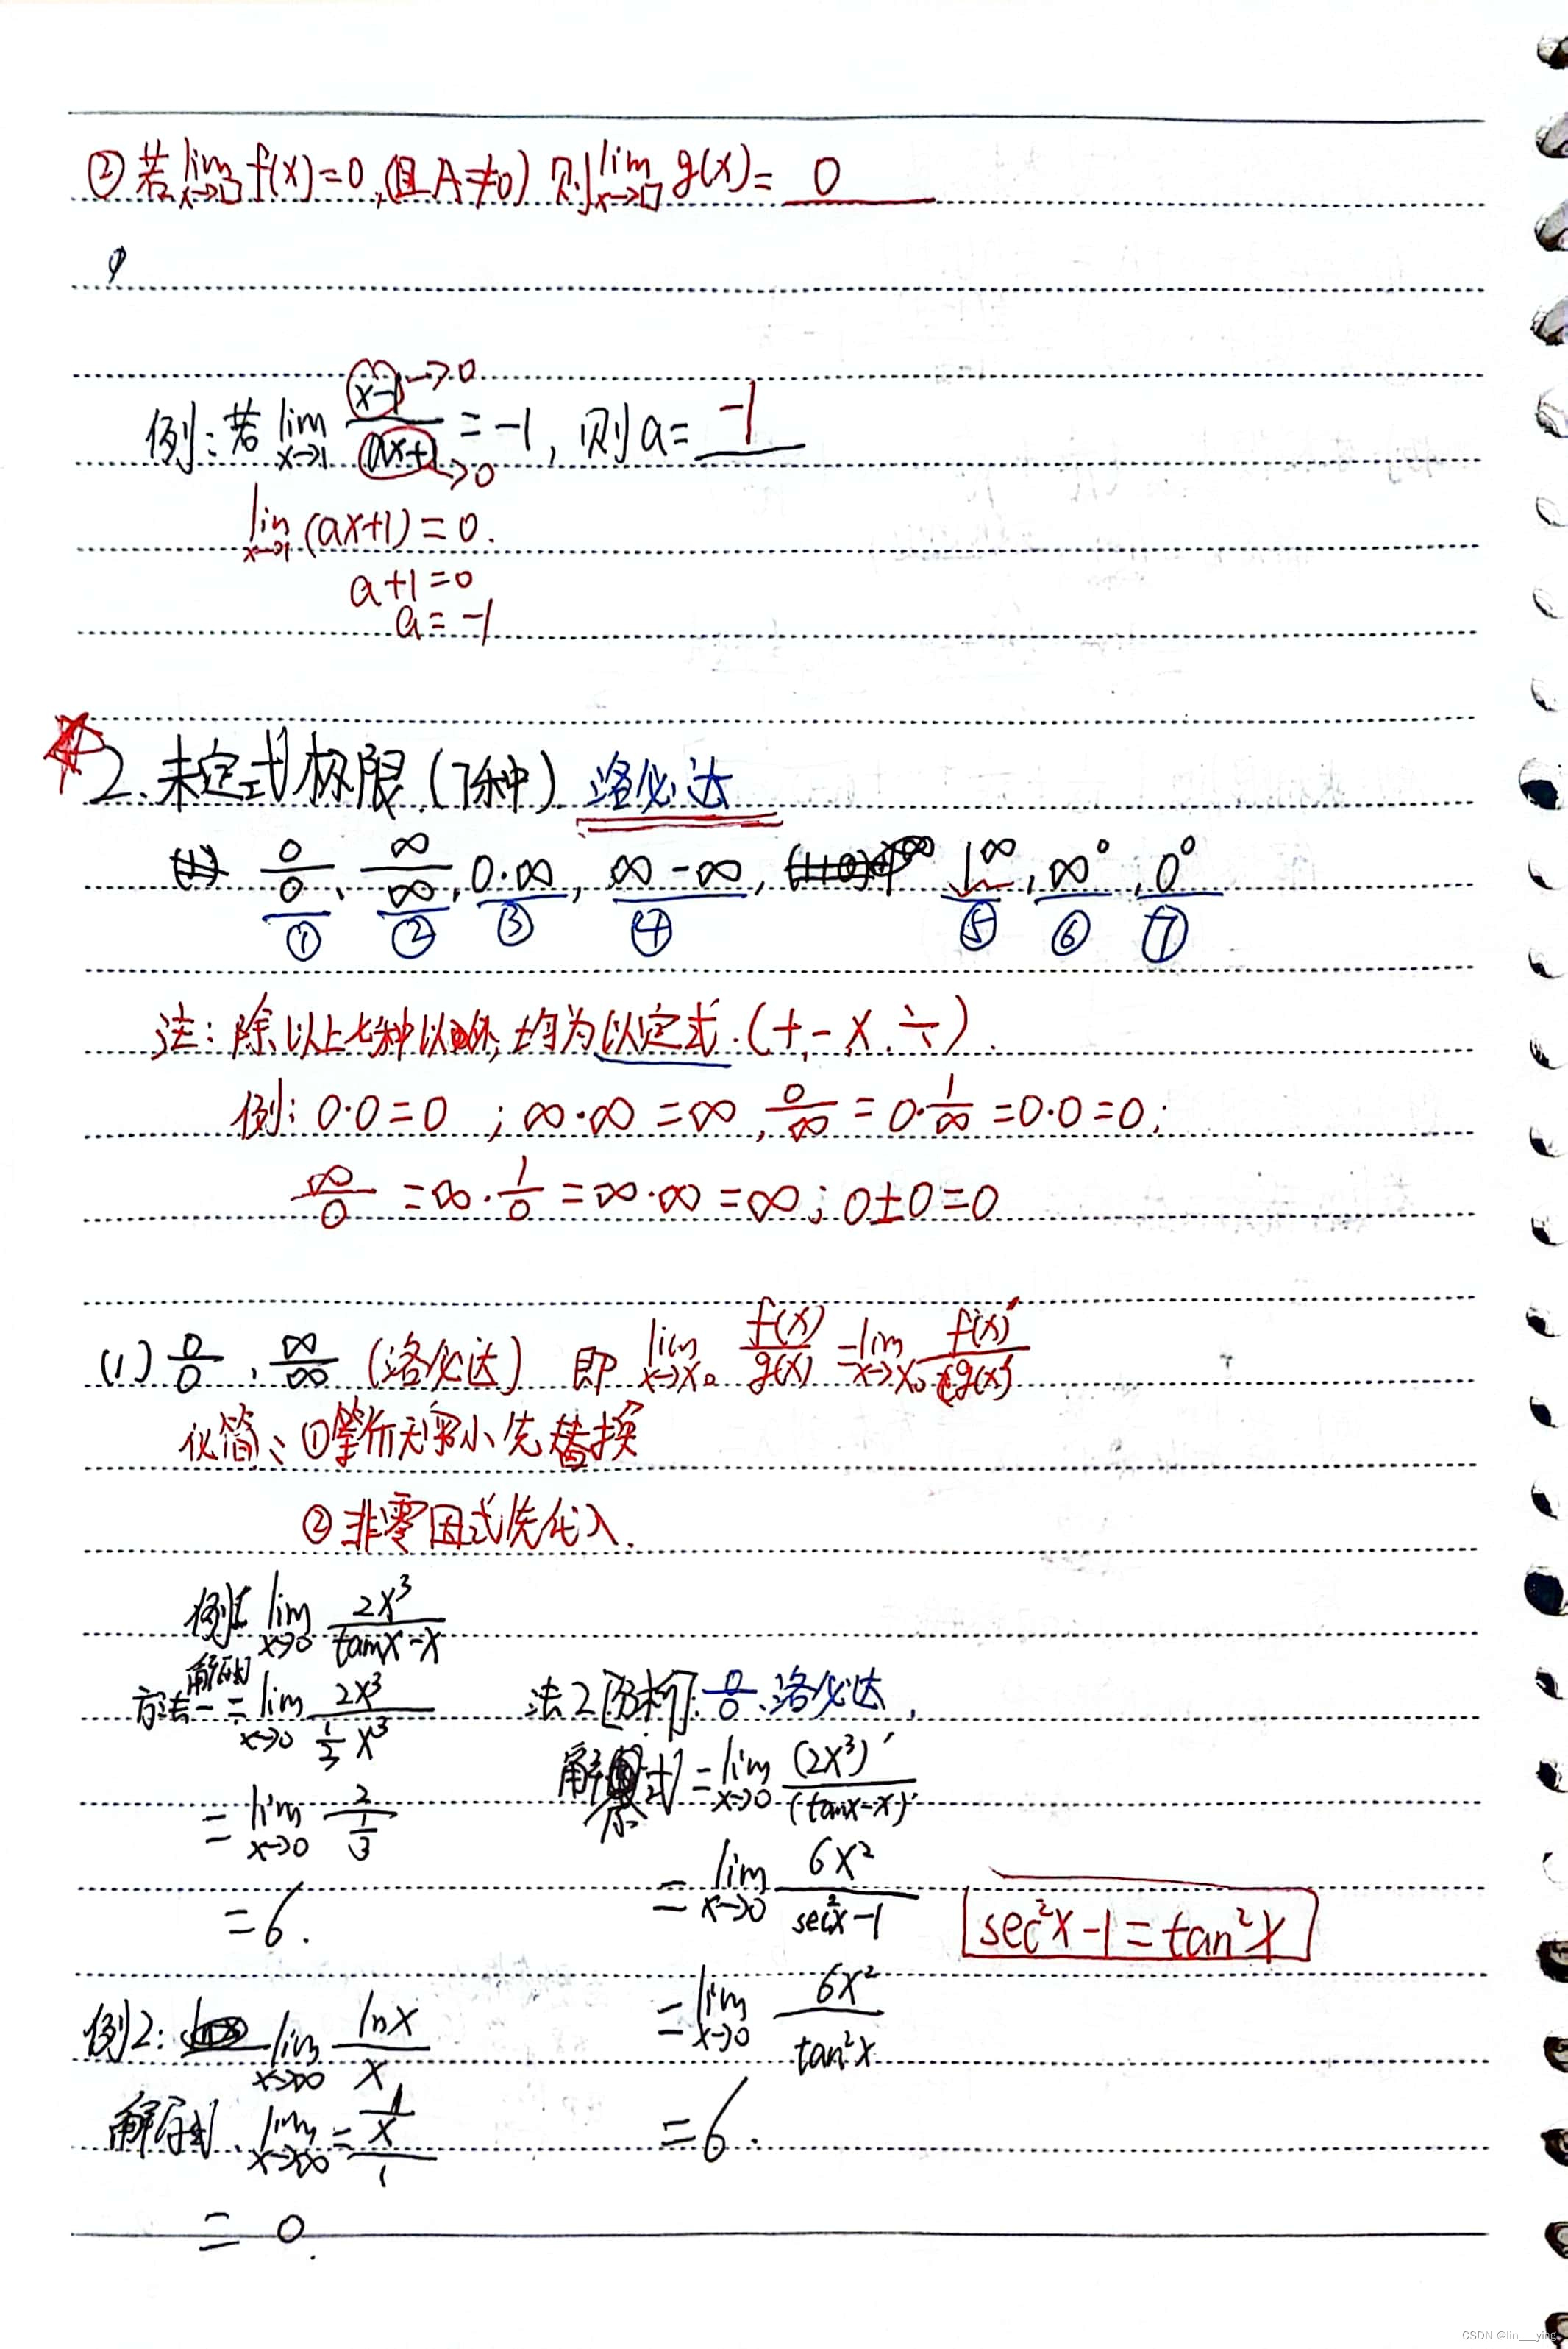 ② 若 lim x→□ f(x)=0,(且A≠0) 则 lim x→□ g(x)= 0
例: 若 lim x→1 (x-1)/(ax+1) = -1, 则 a= -1
→0
→0
lim x→1 (ax+1)=0.
a+1=0
a=-1
2. 未定式极限(7种) 洛必达
0/0、∞/∞, 0·∞, ∞-∞, 1^∞, ∞^0, 0^0
① ② ③ ④ ⑤ ⑥ ⑦
注: 除以上七种以外,均为以定式.(+,-,×,÷).
例: 0·0=0 ; ∞·∞=∞, 0/∞ = 0·1/∞ =0·0=0;
∞/0 =∞·1/0 =∞·∞=∞; 0±0=0
(1) 0/0, ∞/∞ (洛必达) 即 lim x→x₀ f(x)/g(x) = lim x→x₀ f(x)'/g(x)'
化简: ①等价无穷小先替换
②非零因式先代入.
例1 lim x→0 2x³/(tanx-x)
方法一 解: = lim x→0 2x³/(1/3 x³)
= lim x→0 2/(1/3)
=6.
法2 [分析]: 0/0, 洛必达,
解: 原式 = lim x→0 (2x³)'/(tanx-x)'
= lim x→0 6x²/(sec²x-1)
sec²x-1=tan²x
= lim x→0 6x²/tan²x
=6.
例2: lim x→∞ lnx/x
解: 原式、lim x→∞ = (1/x)/1
= 0.
CSDN @lin___ying